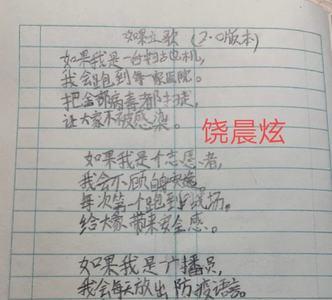 如果之歌 (2.0版本)
如果我是一台扫描机,
我会跑到每一家医院。
把全部病毒都扫掉,
让大家不被感染。
饶晨炫
如果我是个志愿者,
我会不顾自己安危。
每次第一个跑到现场。
给大家带来安全感。
如果我是广播员,
我会每天放出防疫语言。